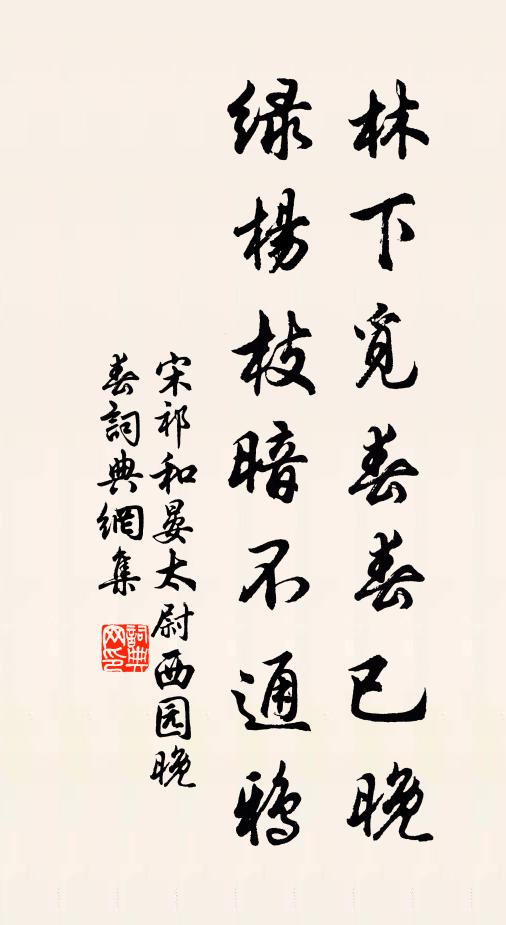 林下觅春春已晚
绿杨枝暗不通鸦
宋祁和晏太尉西园晚
春詞典網集
詞典
网印